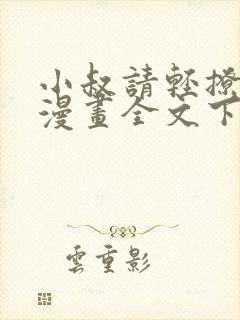 小叔請輕撩
漫畫全文下
雲重影